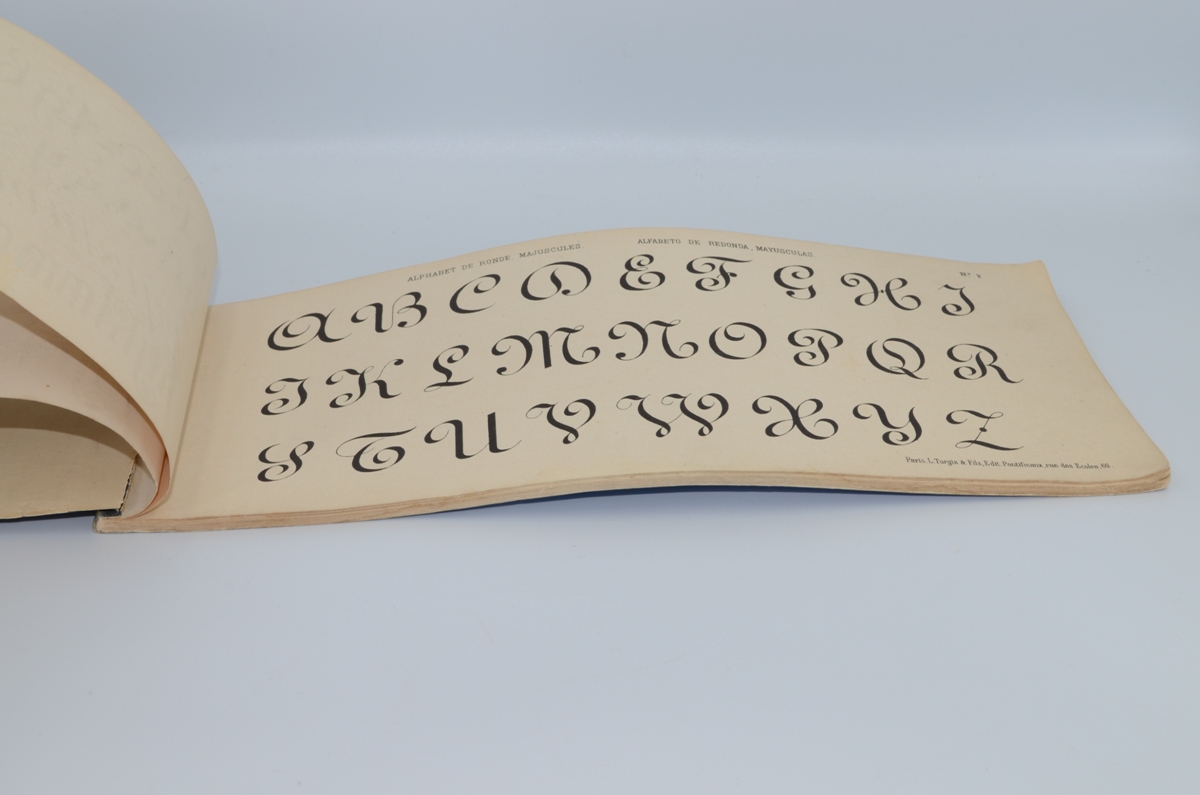 ALPHABET DE RONDE MAJUSCULES. ALFABETO DE REDONDA, MAYUSCULAS
A B C D E F G H I
J K L M N O P Q R
S T U V W X Y Z
Paris. L. Turgis & Fils, Edit. Pontificaux, rue des Ecoles, 60.